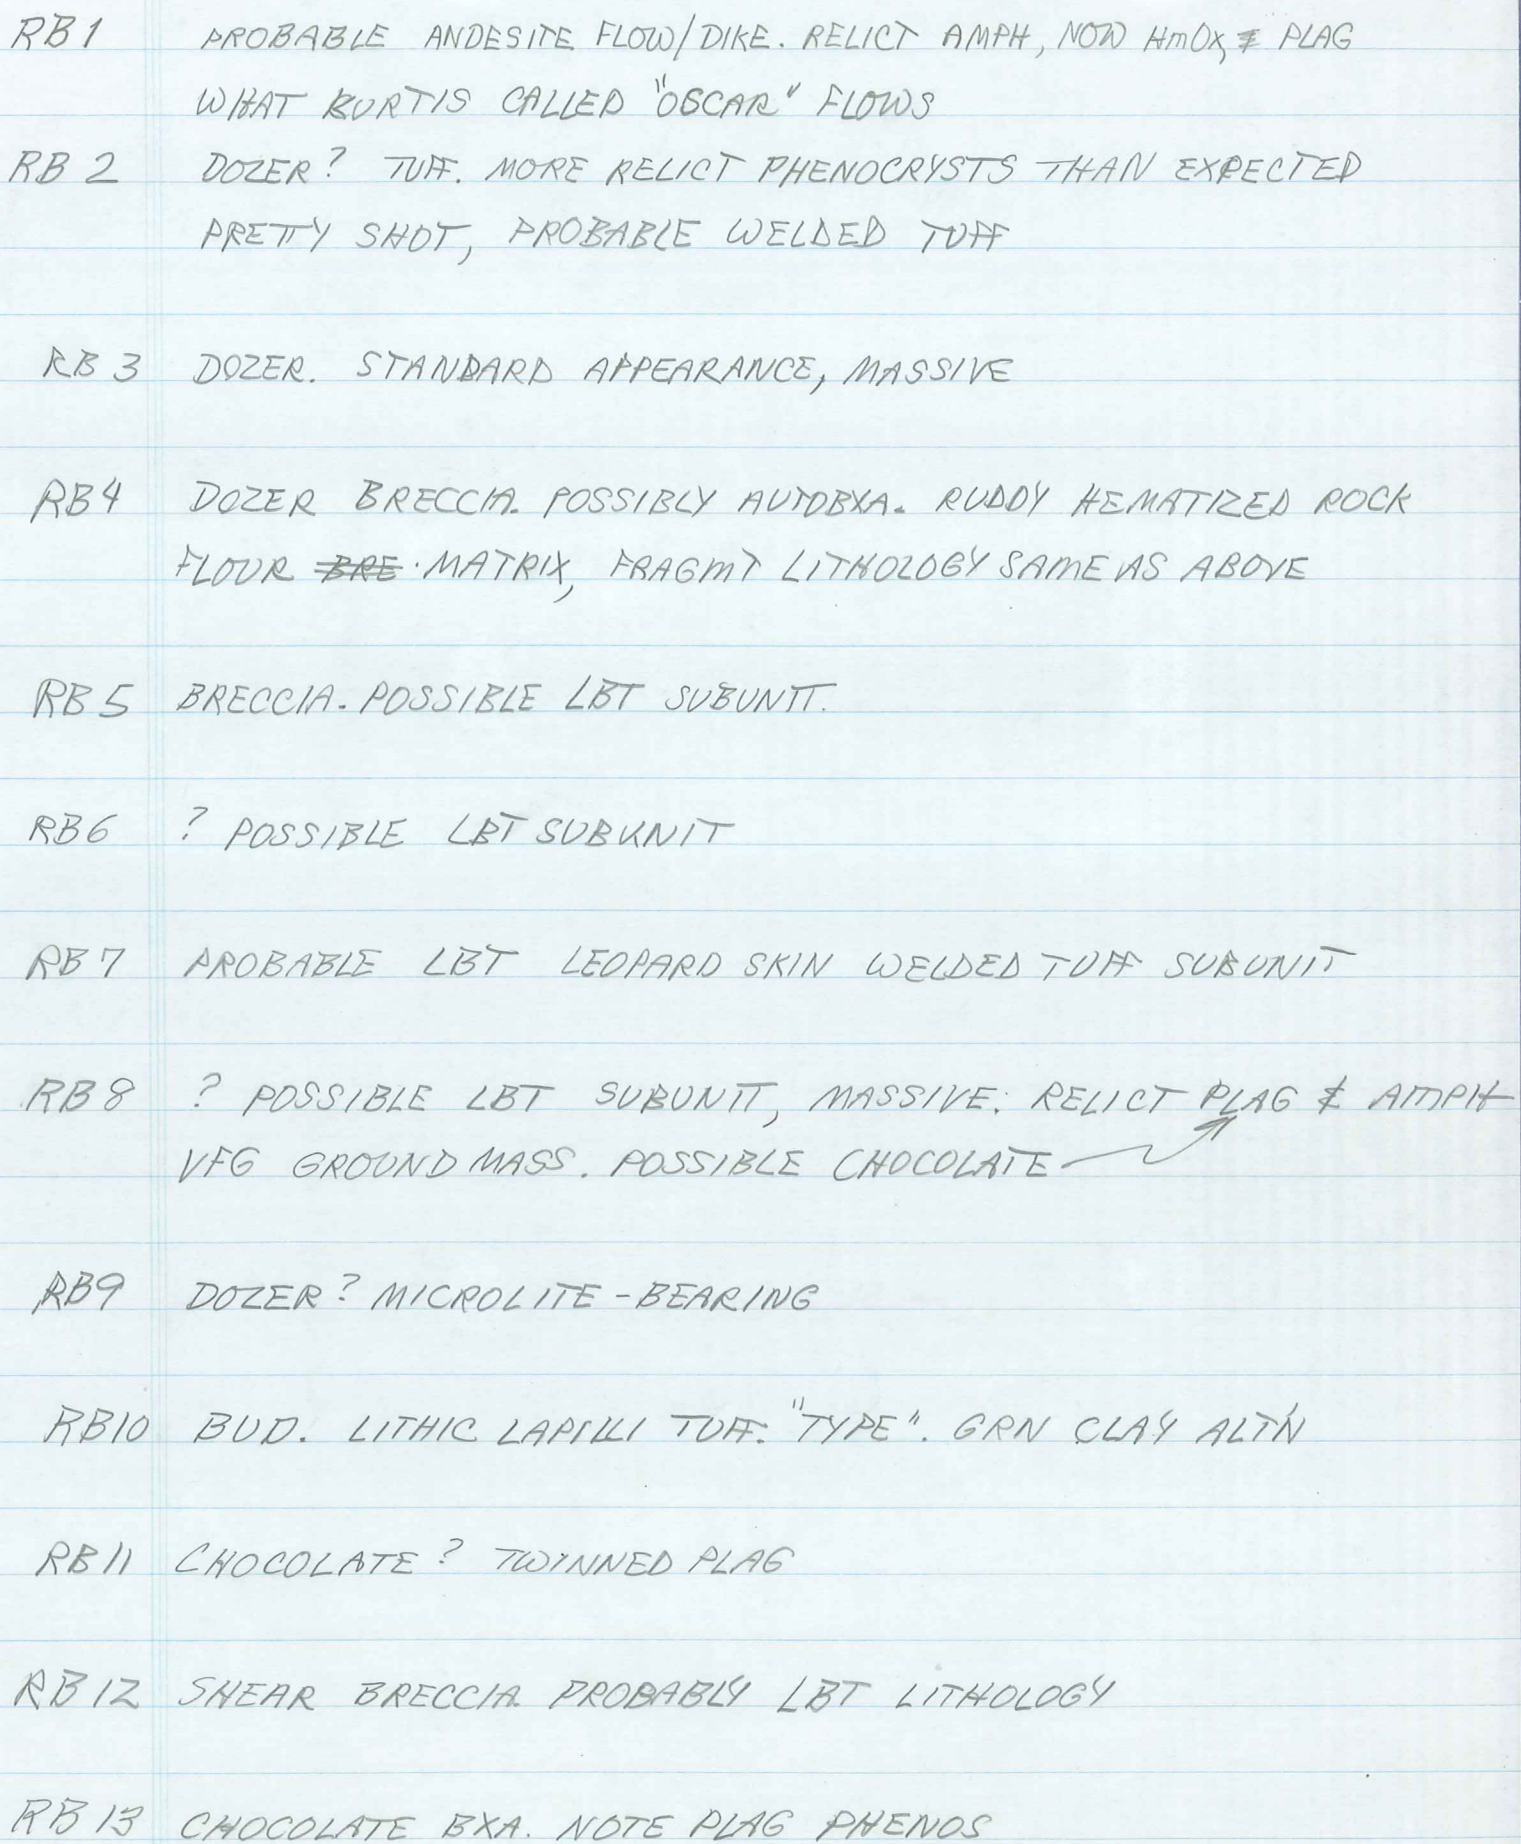 RB 1 PROBABLE ANDESITE FLOW/DIKE. RELICT AMPH, NOW HmOx, & PLAG
WHAT BURTIS CALLED "OSCAR" FLOWS
RB 2 DOZER? TUFF. MORE RELICT PHENOCRYSTS THAN EXPECTED
PRETTY SHOT, PROBABLE WELDED TUFF
RB 3 DOZER. STANDARD APPEARANCE, MASSIVE
RB 4 DOZER BRECCIA. POSSIBLY AUTOBXA. RUDDY HEMATIZED ROCK
FLOUR BRE. MATRIX, FRAGMT LITHOLOGY SAME AS ABOVE
RB 5 BRECCIA. POSSIBLE LBT SUBUNIT.
RB 6 ? POSSIBLE LBT SUBUNIT
RB 7 PROBABLE LBT LEOPARD SKIN WELDED TUFF SUBUNIT
RB 8 ? POSSIBLE LBT SUBUNIT, MASSIVE. RELICT PLAG & AMPH
VFG GROUNDMASS. POSSIBLE CHOCOLATE
RB9 DOZER? MICROLITE-BEARING
RB10 BUD. LITHIC LAPILLI TUFF. "TYPE". GRN CLAY ALT'N
RB 11 CHOCOLATE? TWINNED PLAG
RB 12 SHEAR BRECCIA. PROBABLY LBT LITHOLOGY
RB 13 CHOCOLATE BXA. NOTE PLAG PHENOS